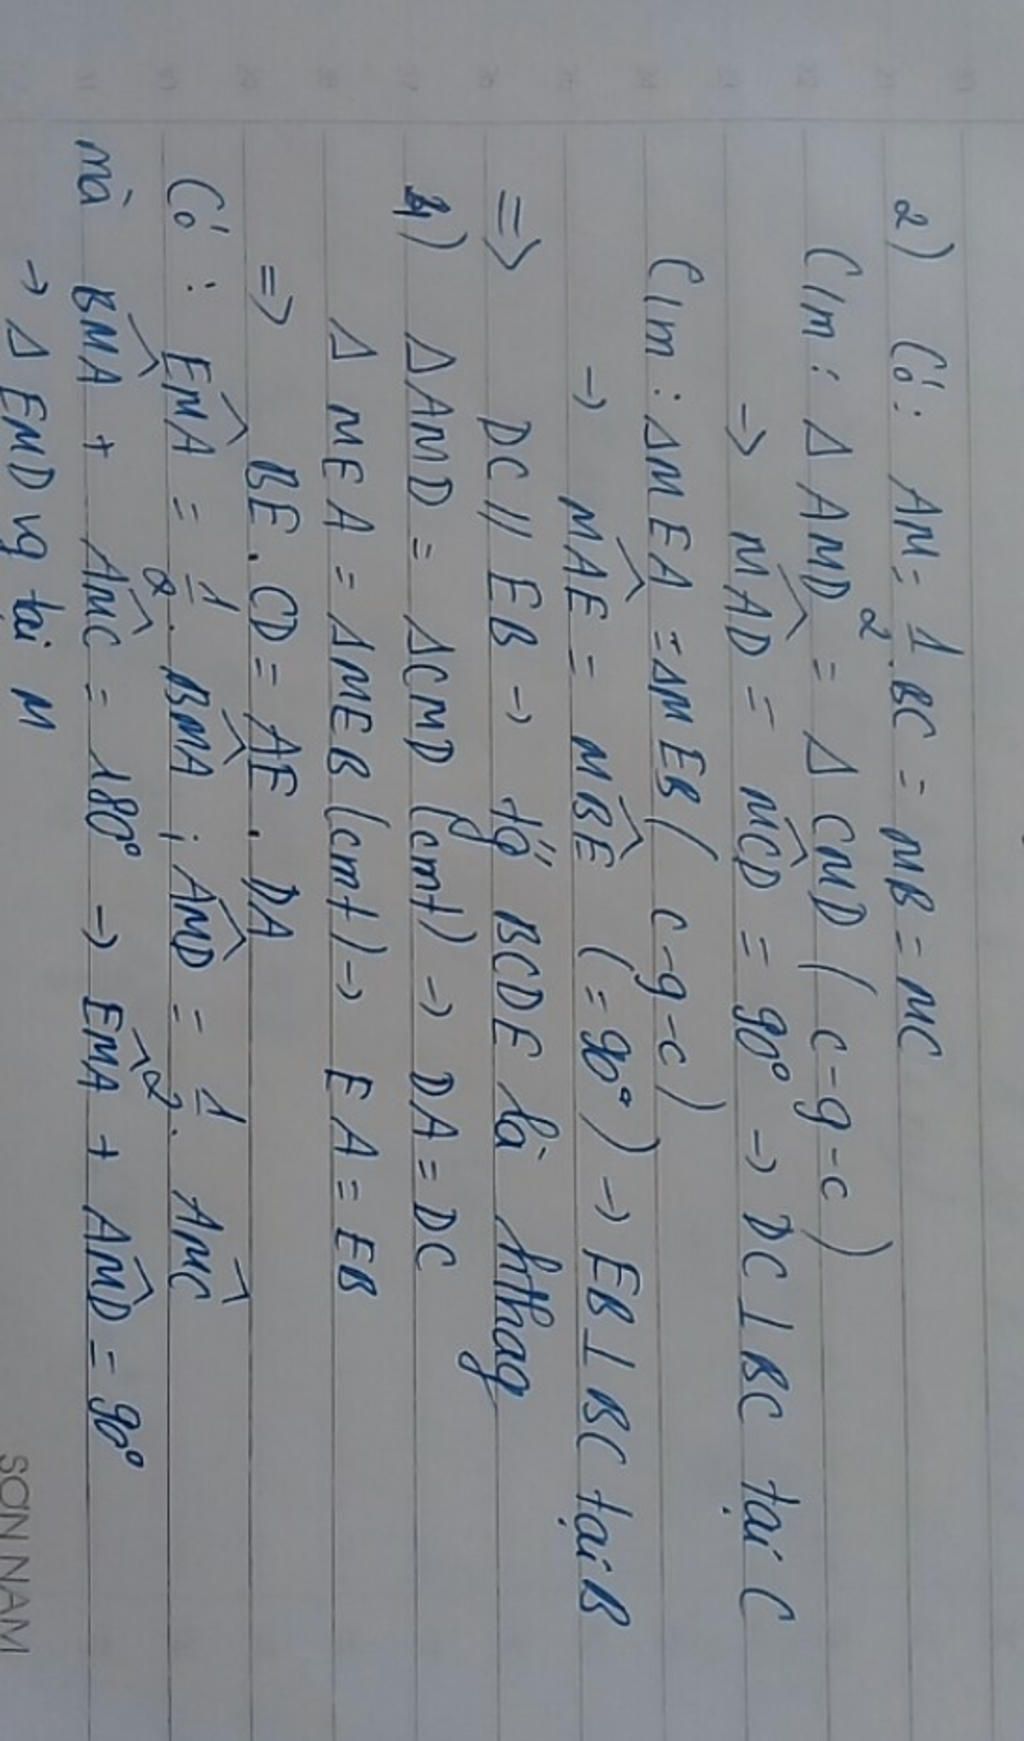 2) Có: AM = 1/2 . BC = MB = MC
C/m: Δ AMD = Δ CMD ( c-g-c )
→ MAD = MCD = 90° → DC ⊥ BC tại C
C/m: ΔMEA = ΔMEB ( c-g-c )
→ MAE = MBE (= 90°) → EB ⊥ BC tại B
=> DC // EB → tg BCDE là hthag
ΔAMD = ΔCMD (cmt) → DA = DC
Δ MEA = ΔMEB (cmt) → EA = EB
=> BE . CD = AE . DA
Có: EMA = 1/2 . BMA ; AMD = 1/2 . AMC
mà BMA + AMC = 180° → EMA + AMD = 90°
→ Δ EMD vg tại M
SƠN NAM